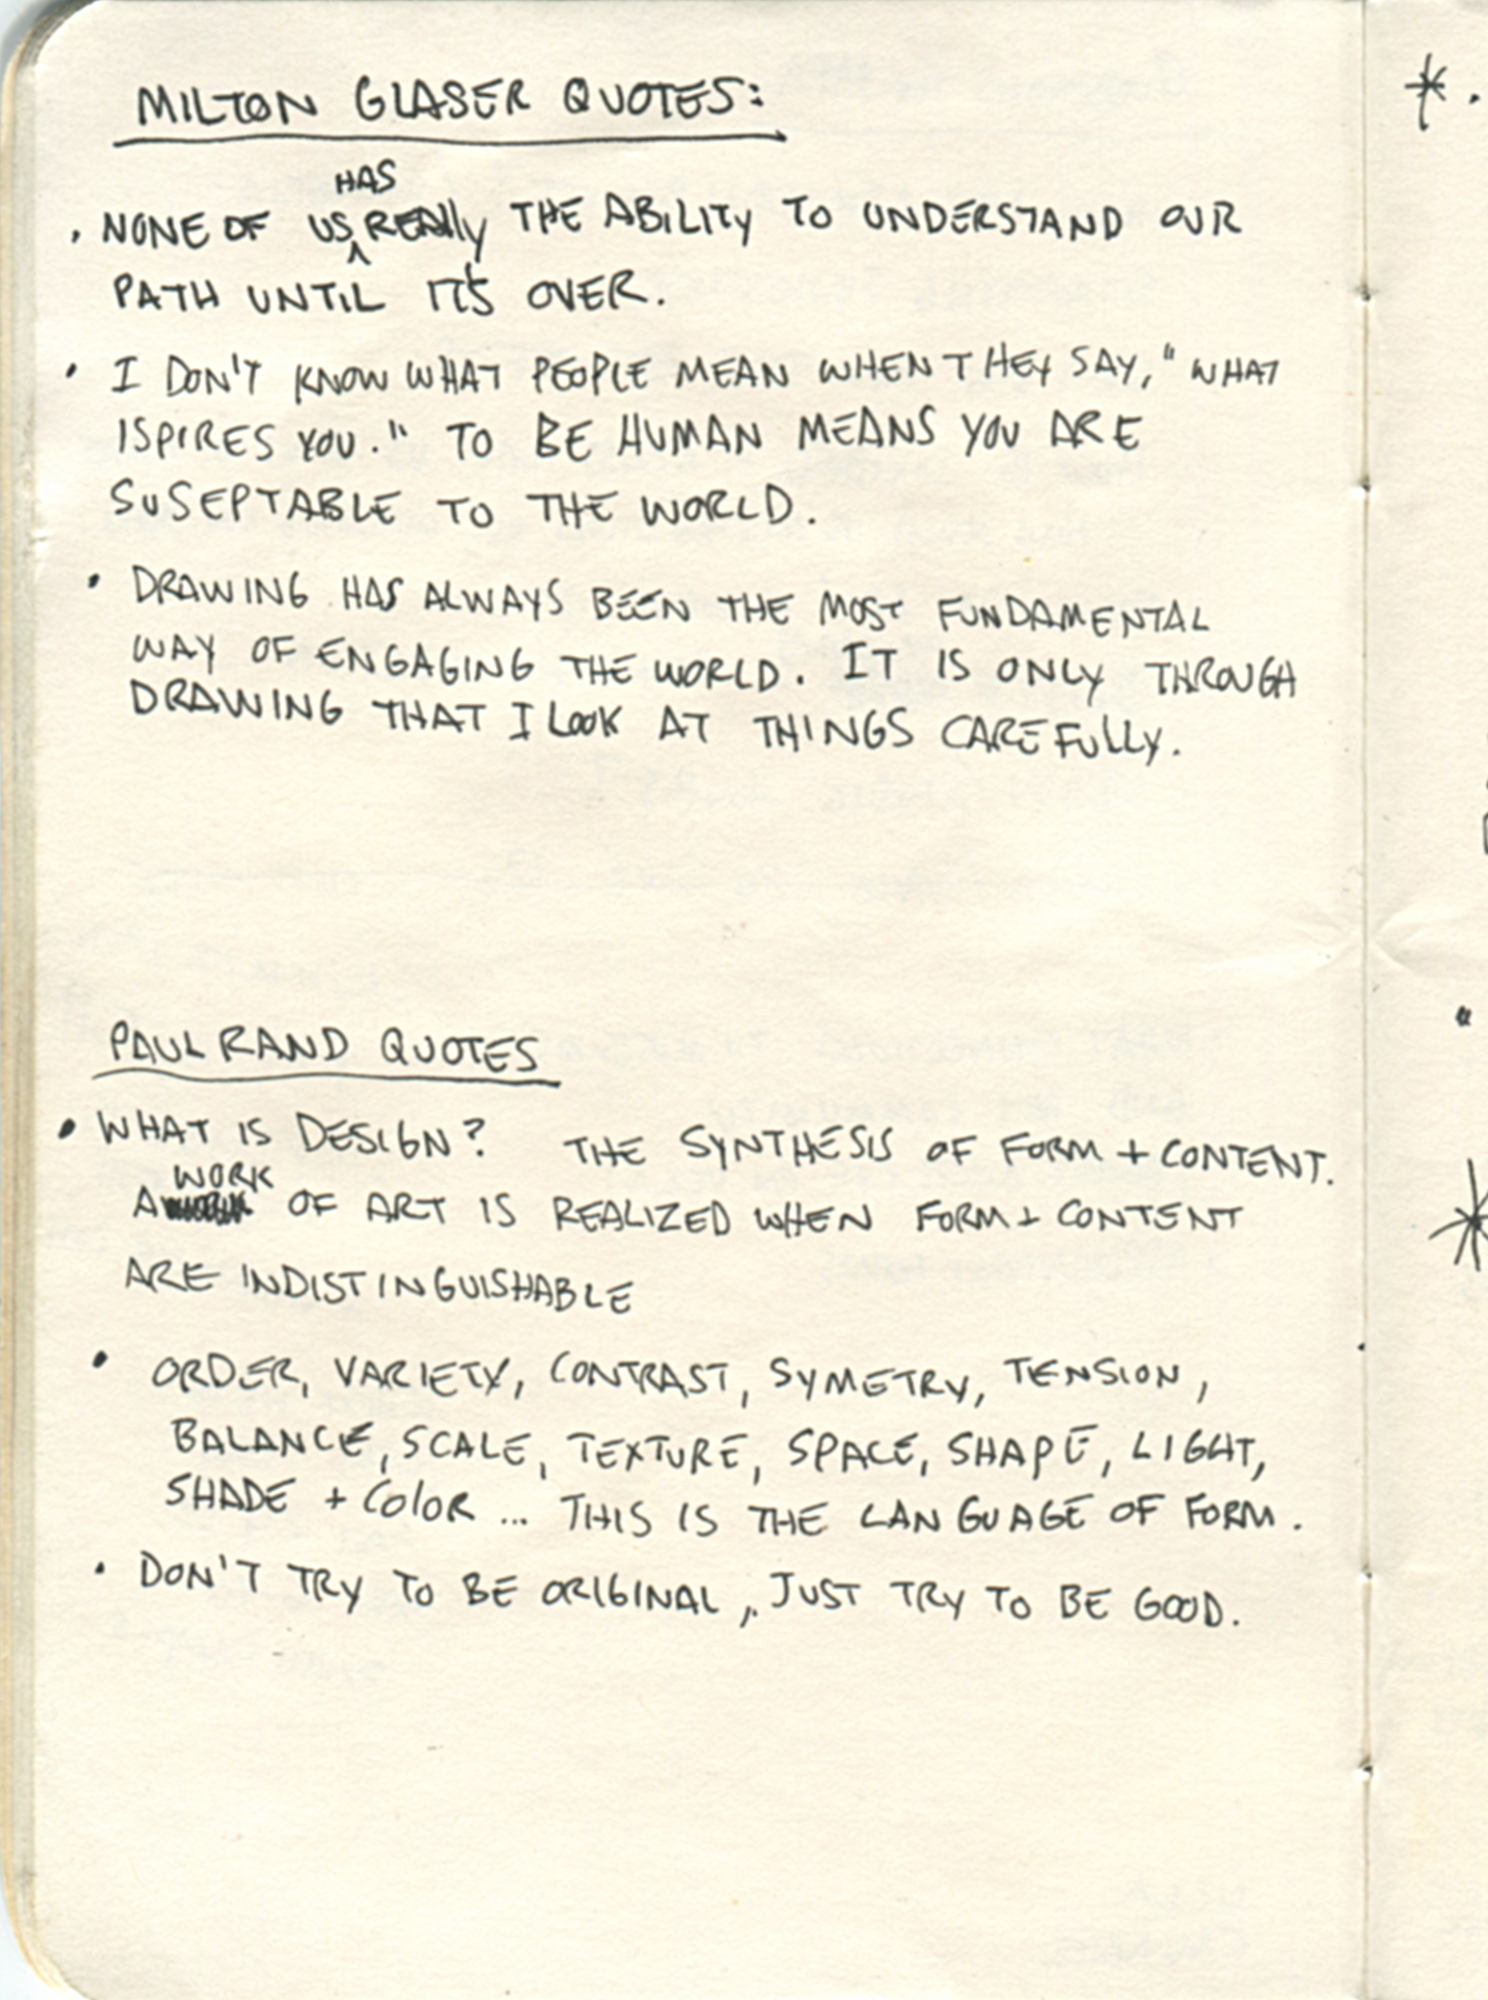 MILTON GLASER QUOTES:
HAS
• NONE OF US ^ REALLY THE ABILITY TO UNDERSTAND OUR
PATH UNTIL IT'S OVER.
• I DON'T KNOW WHAT PEOPLE MEAN WHEN THEY SAY, "WHAT
ISPIRES YOU." TO BE HUMAN MEANS YOU ARE
SUSEPTABLE TO THE WORLD.
• DRAWING HAS ALWAYS BEEN THE MOST FUNDAMENTAL
WAY OF ENGAGING THE WORLD. IT IS ONLY THROUGH
DRAWING THAT I LOOK AT THINGS CAREFULLY.
PAUL RAND QUOTES
• WHAT IS DESIGN? THE SYNTHESIS OF FORM + CONTENT.
WORK
A OF ART IS REALIZED WHEN FORM + CONTENT
ARE INDISTINGUISHABLE
• ORDER, VARIETY, CONTRAST, SYMETRY, TENSION,
BALANCE, SCALE, TEXTURE, SPACE, SHAPE, LIGHT,
SHADE + COLOR ... THIS IS THE LANGUAGE OF FORM.
• DON'T TRY TO BE ORIGINAL, JUST TRY TO BE GOOD.